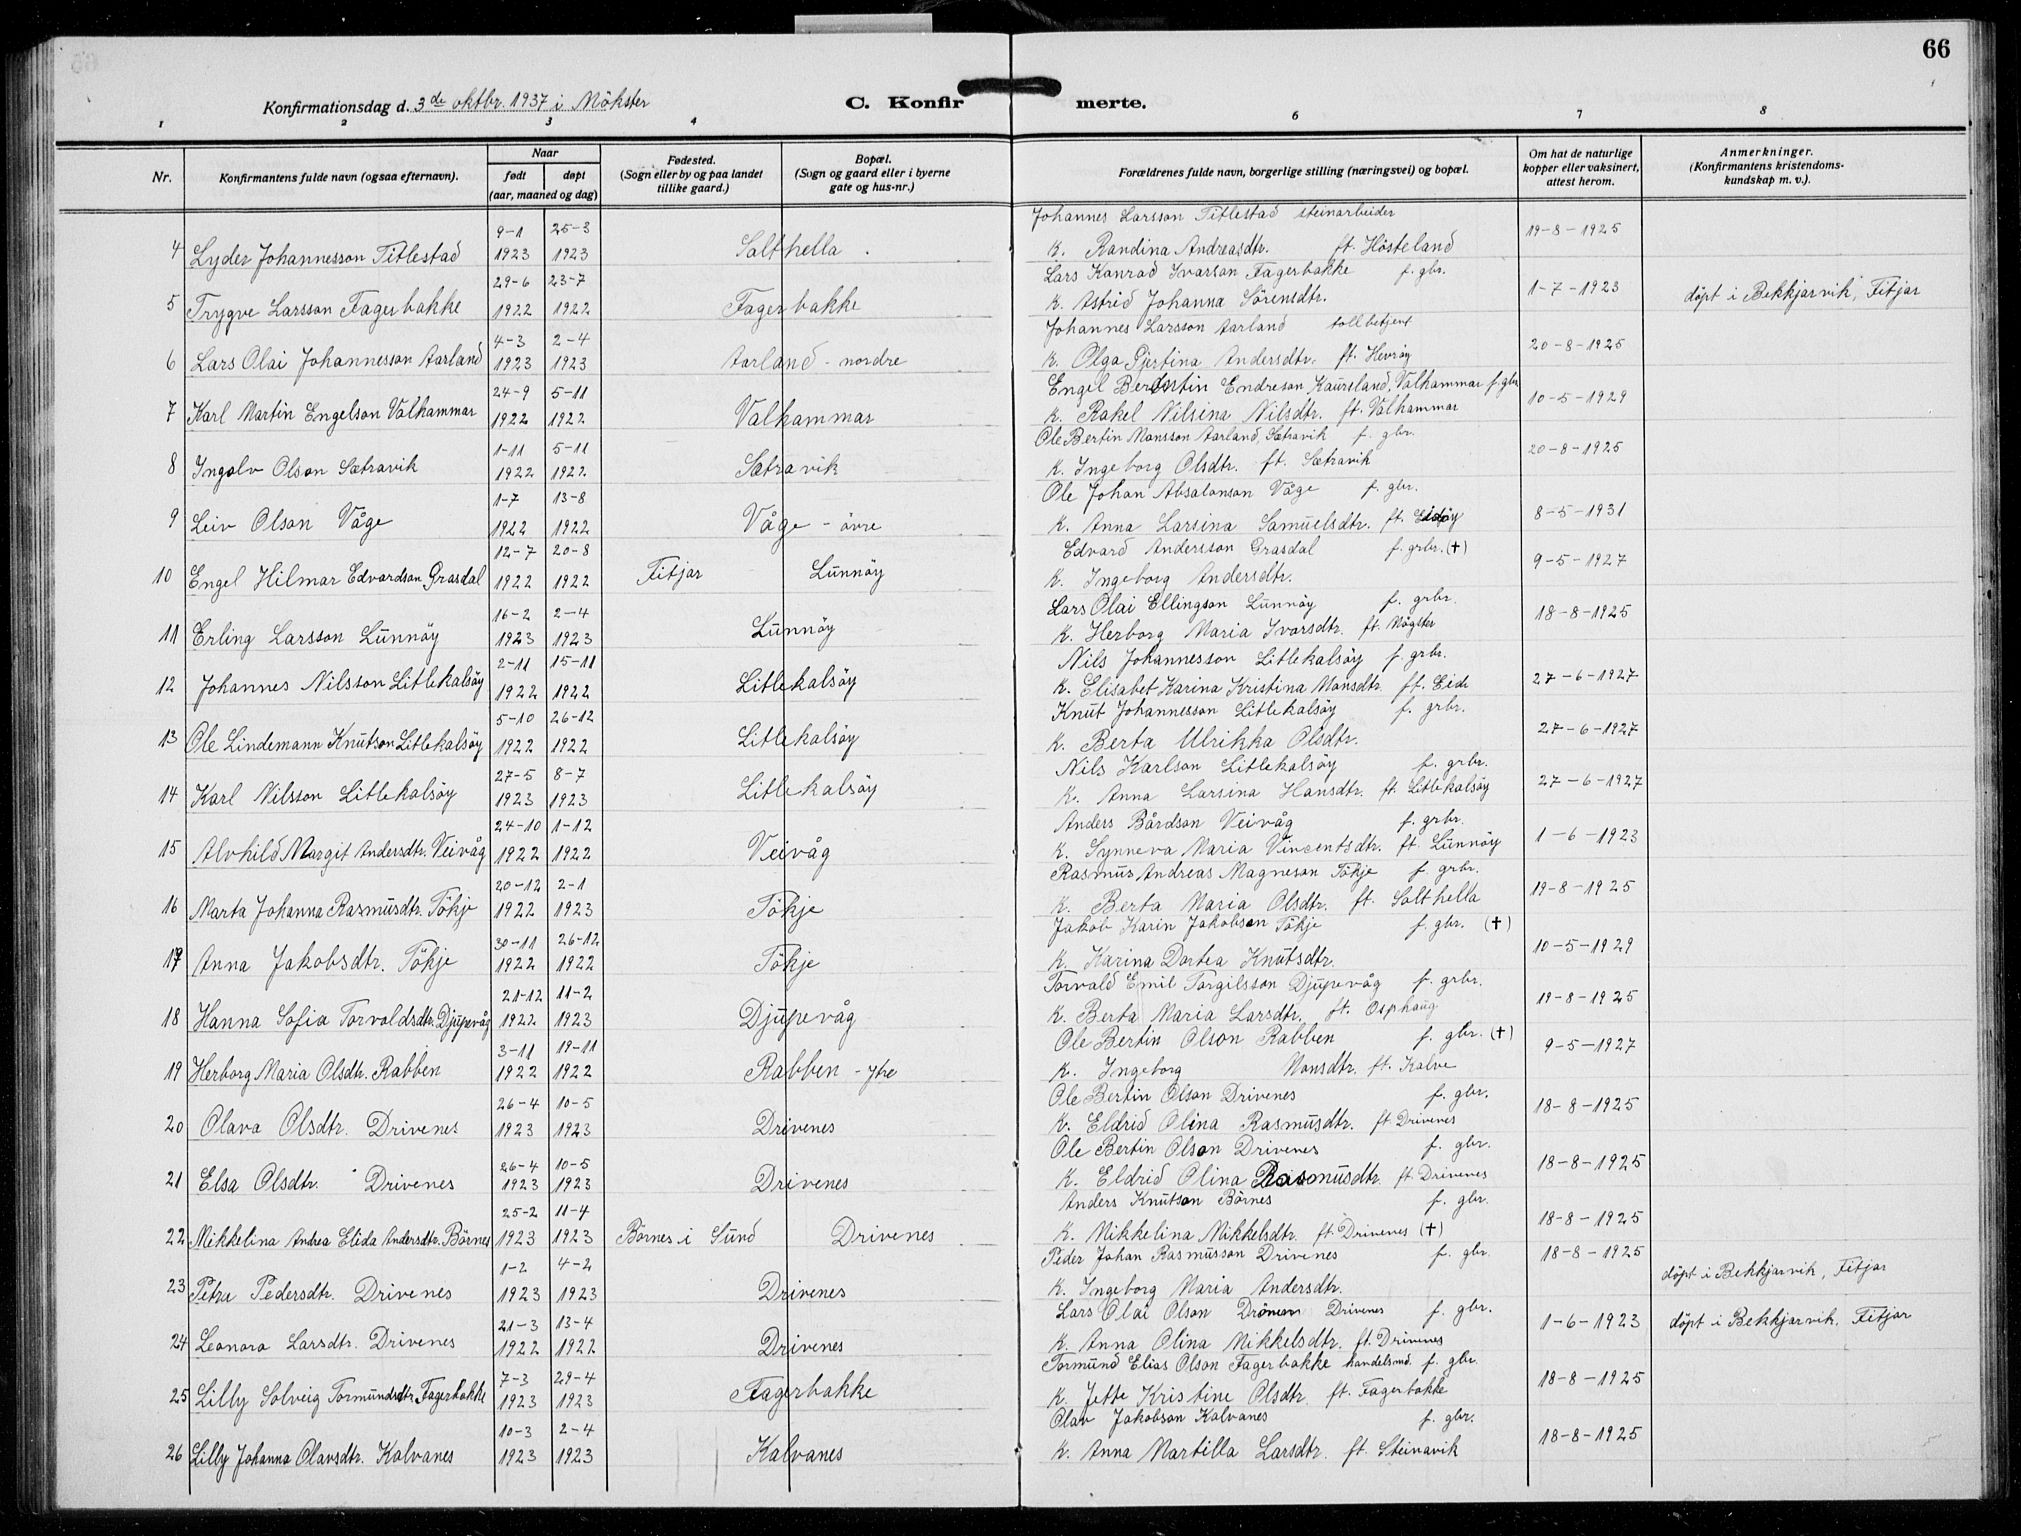 66
Konfirmationsdag d. 3de oktbr. 1937 i Mökster
C. Konfirmerte.
1 2 3 4 6 7 8
Nr.
Konfirmantens fulde navn (ogsaa efternavn).
Naar
født døpt
(aar, maaned og dag)
Fødested.
(Sogn eller by og paa landet
tillike gaard.)
Bopæl.
(Sogn og gaard eller i byerne
gate og hus-nr.)
Forældrenes fulde navn, borgerlige stilling (næringsvei) og bopæl.
Om hat de naturlige
kopper eller vaksinert,
attest herom.
Anmerkninger.
(Konfirmantens kristendoms-
kundskap m. v.).
9-1 25-3 Johannes Larsson Titlestad steinarbeider 19-8-1925
4 Lyder Johannesson Titlestad 1923 1923 Salthella K. Randina Andreasdtr. ft. Hösteland
29-6 23-7 Lars Konrad Ivarson Fagerbakke f. gbr. 1-7-1923
5 Trygve Larsson Fagerbakke 1922 1922 Fagerbakke K. Astrid Johanna Sörensdtr. döpt i Bekkjarvik, Fitjar
4-3 2-4 Johannes Larsson Aarland tollbetjent 20-8-1925
6 Lars Olai Johannesson Aarland 1923 1923 Aarland - nordre K. Olga Gjertina Andersdtr. ft. Hevröy
24-9 5-11 Engel Berentin Endreson Kaursland, Valhammar f. gbr. 10-5-1929
7 Karl Martin Engelson Valhammar 1922 1922 Valhammar K. Rakel Nilsina Nilsdtr. ft. Valhammar
1-11 5-11 Ole Bertin Monsson Aarland, Sætravik f. gbr. 20-8-1925
8 Ingolv Olson Sætravik 1922 1922 Sætravik K. Ingeborg Olsdtr. ft. Sætravik
1-7 13-8 Ole Johan Absalonson Våge f. gbr. 8-5-1931
9 Leiv Olson Våge 1922 1922 Våge - övre K. Anna Larsina Samuelsdtr. ft.
12-7 20-8 Edvard Andersson Grasdal f. grbr. (†) 9-5-1927
10 Engel Hilmar Edvardson Grasdal 1922 1922 Fitjar Lunnöy K. Ingeborg Andersdtr.
16-2 2-4 Lars Olai Ellingson Lunnöy f. grbr. 18-8-1925
11 Erling Larsson Lunnöy 1923 1923 Lunnöy K. Herborg Maria Ivarsdtr. ft. Mögster
2-11 15-11 Nils Johannesson Litlekalsöy f. grbr. 27-6-1927
12 Johannes Nilsson Litlekalsöy 1922 1922 Litlekalsöy K. Elisabet Karina Kristina Monsdtr. ft. Eide
5-10 26-12 Knut Johannesson Litlekalsöy f. grbr. 27-6-1927
13 Ole Lindemann Knutson Litlekalsöy 1922 1922 Litlekalsöy K. Berta Ulrikka Olsdtr.
27-5 8-7 Nils Karlson Litlekalsöy f. grbr. 27-6-1927
14 Karl Nilsson Litlekalsöy 1923 1923 Litlekalsöy K. Anna Larsina Hansdtr. ft. Litlekalsöy
24-10 1-12 Anders Bårdson Veivåg f. grbr. 1-6-1923
15 Alvhild Margit Andersdtr. Veivåg 1922 1922 Veivåg K. Synneva Maria Vincentsdtr. ft. Lunnöy
20-12 2-1 Rasmus Andreas Magneson Tökje f. grbr. 19-8-1925
16 Marta Johanna Rasmusdtr. Tökje 1922 1923 Tökje K. Berta Maria Olsdtr. ft. Salthella
30-11 26-12 Jakob Karin Jakobson Tökje f. gbr. (†) 10-5-1929
17 Anna Jakobsdtr. Tökje 1922 1922 Tökje K. Karina Dortea Knutsdtr.
21-12 11-2 Torvald Emil Torgilsson Djupevåg f. grbr. 19-8-1925
18 Hanna Sofia Torvaldsdtr. Djupevåg 1922 1923 Djupevåg K. Berta Maria Larsdtr. ft. Osphaug
3-11 19-11 Ole Bertin Olson Rabben f. gbr. (†) 9-5-1927
19 Herborg Maria Olsdtr. Rabben 1922 1922 Rabben - ytre K. Ingeborg Monsdtr. ft. Kalve
26-4 10-5 Ole Bertin Olson Drivenes f. gbr. 18-8-1925
20 Olava Olsdtr. Drivenes 1923 1923 Drivenes K. Eldrid Olina Rasmusdtr. ft Drivenes
26-4 10-5 Ole Bertin Olson Drivenes f. gbr. 18-8-1925
21 Elsa Olsdtr. Drivenes 1923 1923 Drivenes K. Eldrid Olina Rasmusdtr. ft. Drivenes
25-2 11-4 Anders Knutson Börnes f. gbr. 18-8-1925
22 Mikkelina Andrea Elida Andersdtr. Börnes 1923 1923 Börnes i Sund Drivenes K. Mikkelina Mikkelsdtr. ft. Drivenes (†)
1-2 4-2 Peder Johan Rasmusson Drivenes f. gbr. 18-8-1925
23 Petra Pedersdtr. Drivenes 1923 1923 Drivenes K. Ingeborg Maria Andersdtr. döpt i Bekkjarvik, Fitjar
21-3 13-4 Lars Olai Olson Drönen Drivenes f. gbr. 1-6-1923 döpt i Bekkjarvik, Fitjar
24 Leonora Larsdtr. Drivenes 1922 1922 Drivenes K. Anna Olina Mikkelsdtr. ft. Drivenes
7-3 29-4 Tormund Elias Olson Fagerbakke handelsmd. f. gbr. 18-8-1925
25 Lilly Solveig Tormundsdtr. Fagerbakke 1923 1923 Fagerbakke K. Jette Kristine Olsdtr. ft. Fagerbakke
10-3 2-4 Olav Jakobson Kalvanes f. gbr. 18-8-1925
26 Lilly Johanna Olavsdtr. Kalvanes 1923 1923 Kalvanes K. Anna Martilla Larsdtr. ft. Steinavik